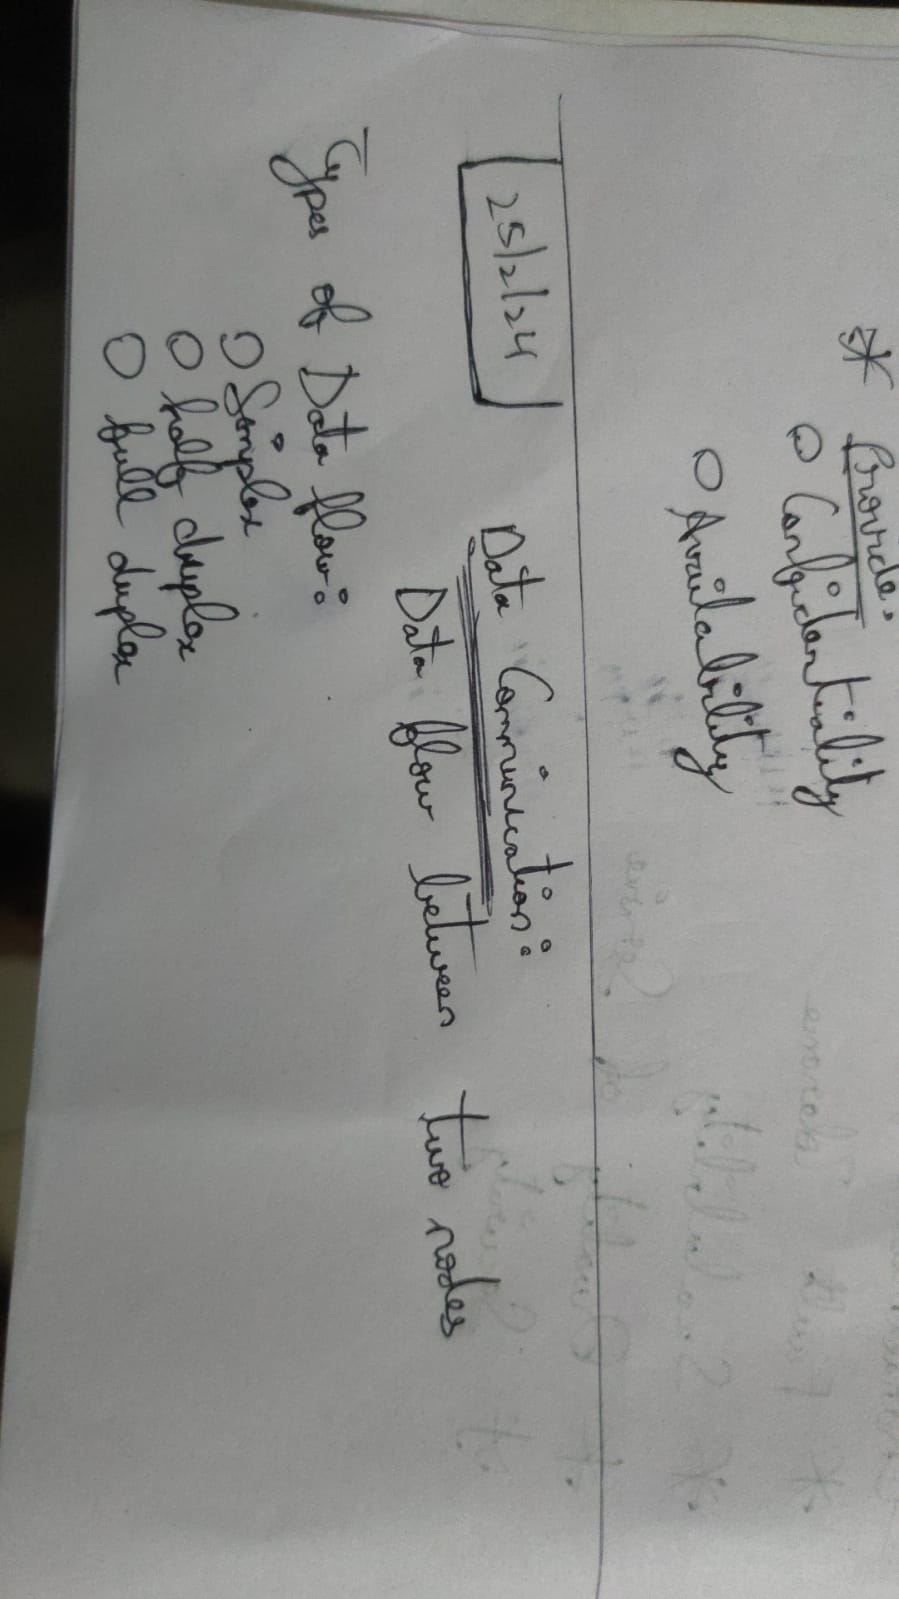 * Provide:
○ Confidentiality
○ Availability
25/2/24
Data Communication:
Data flow between two nodes
Types of Data flow:
○ Simplex
○ half duplex
○ full duplex